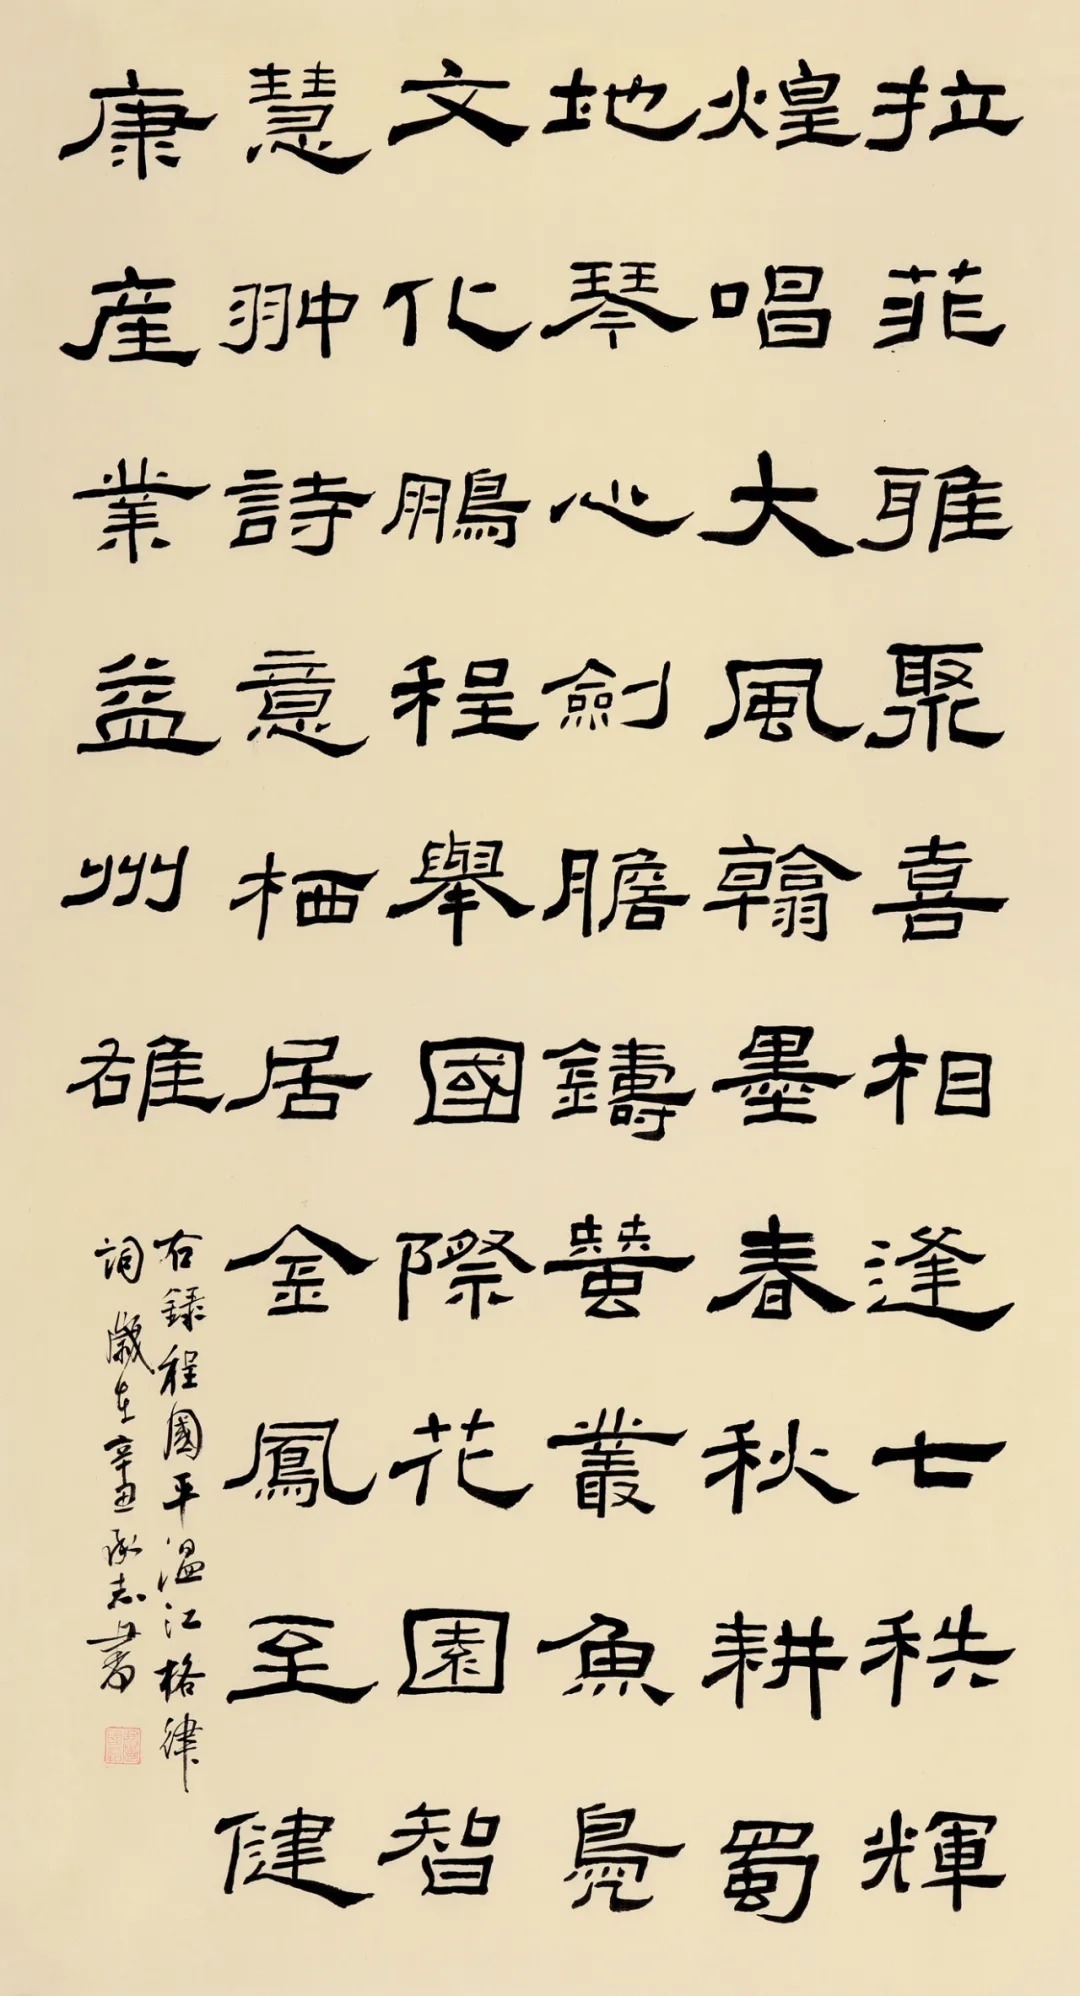 拉菲雅聚喜相逢七秩輝
煌唱大風翰墨春秋耕蜀
地琴心劍膽鑄蠶叢魚鳧
文化鵬程舉國際花園智
慧翀詩意栖居金鳳至健
康產業益州雄
右録程國平温江格律
詞 歲在辛丑承志書